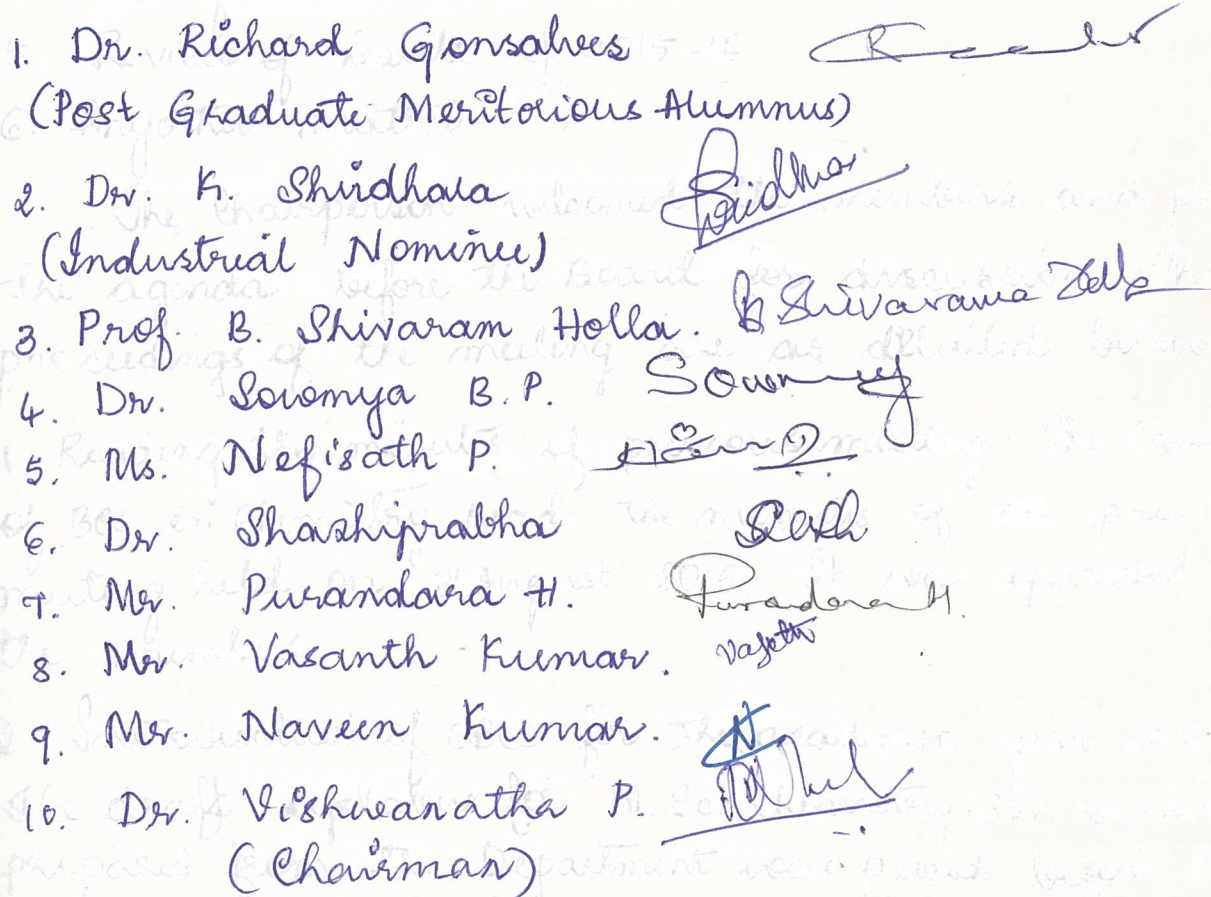 1. Dr. Richard Gonsalves
(Post Graduate Meritorious Alumnus)
2. Dr. K. Shridhara Sridhar
(Industrial Nominee)
3. Prof. B. Shivaram Holla. B Shivarama Holla
4. Dr. Sowmya B.P. Sowmy
5. Ms. Nefisath P.
6. Dr. Shashiprabha
7. Mr. Purandara H. Purandara H.
8. Mr. Vasanth Kumar. Vasanth
9. Mr. Naveen Kumar. N
10. Dr. Vishwanatha P.
(Chairman)